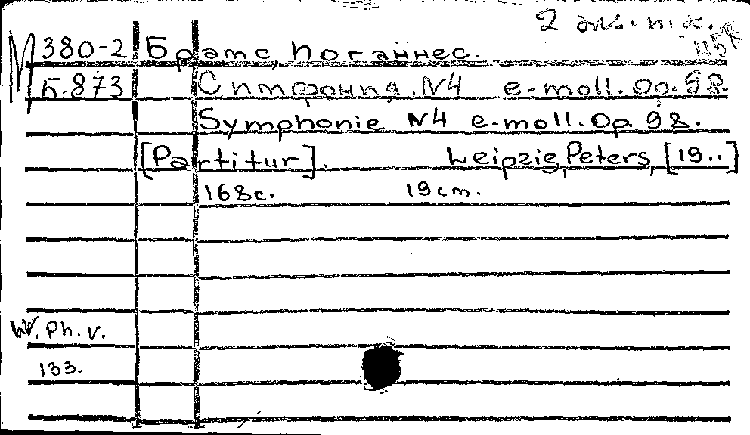 2
M 380-2 Брамс, Иоганнес.
Б.873 Симфония. N4 e-moll. Op. 98.
Symphonie N4 e-moll. Op 98.
[Partitur]. Leipzig, Peters, [19..]
168c. 19cm.
W. Ph. V.
133.